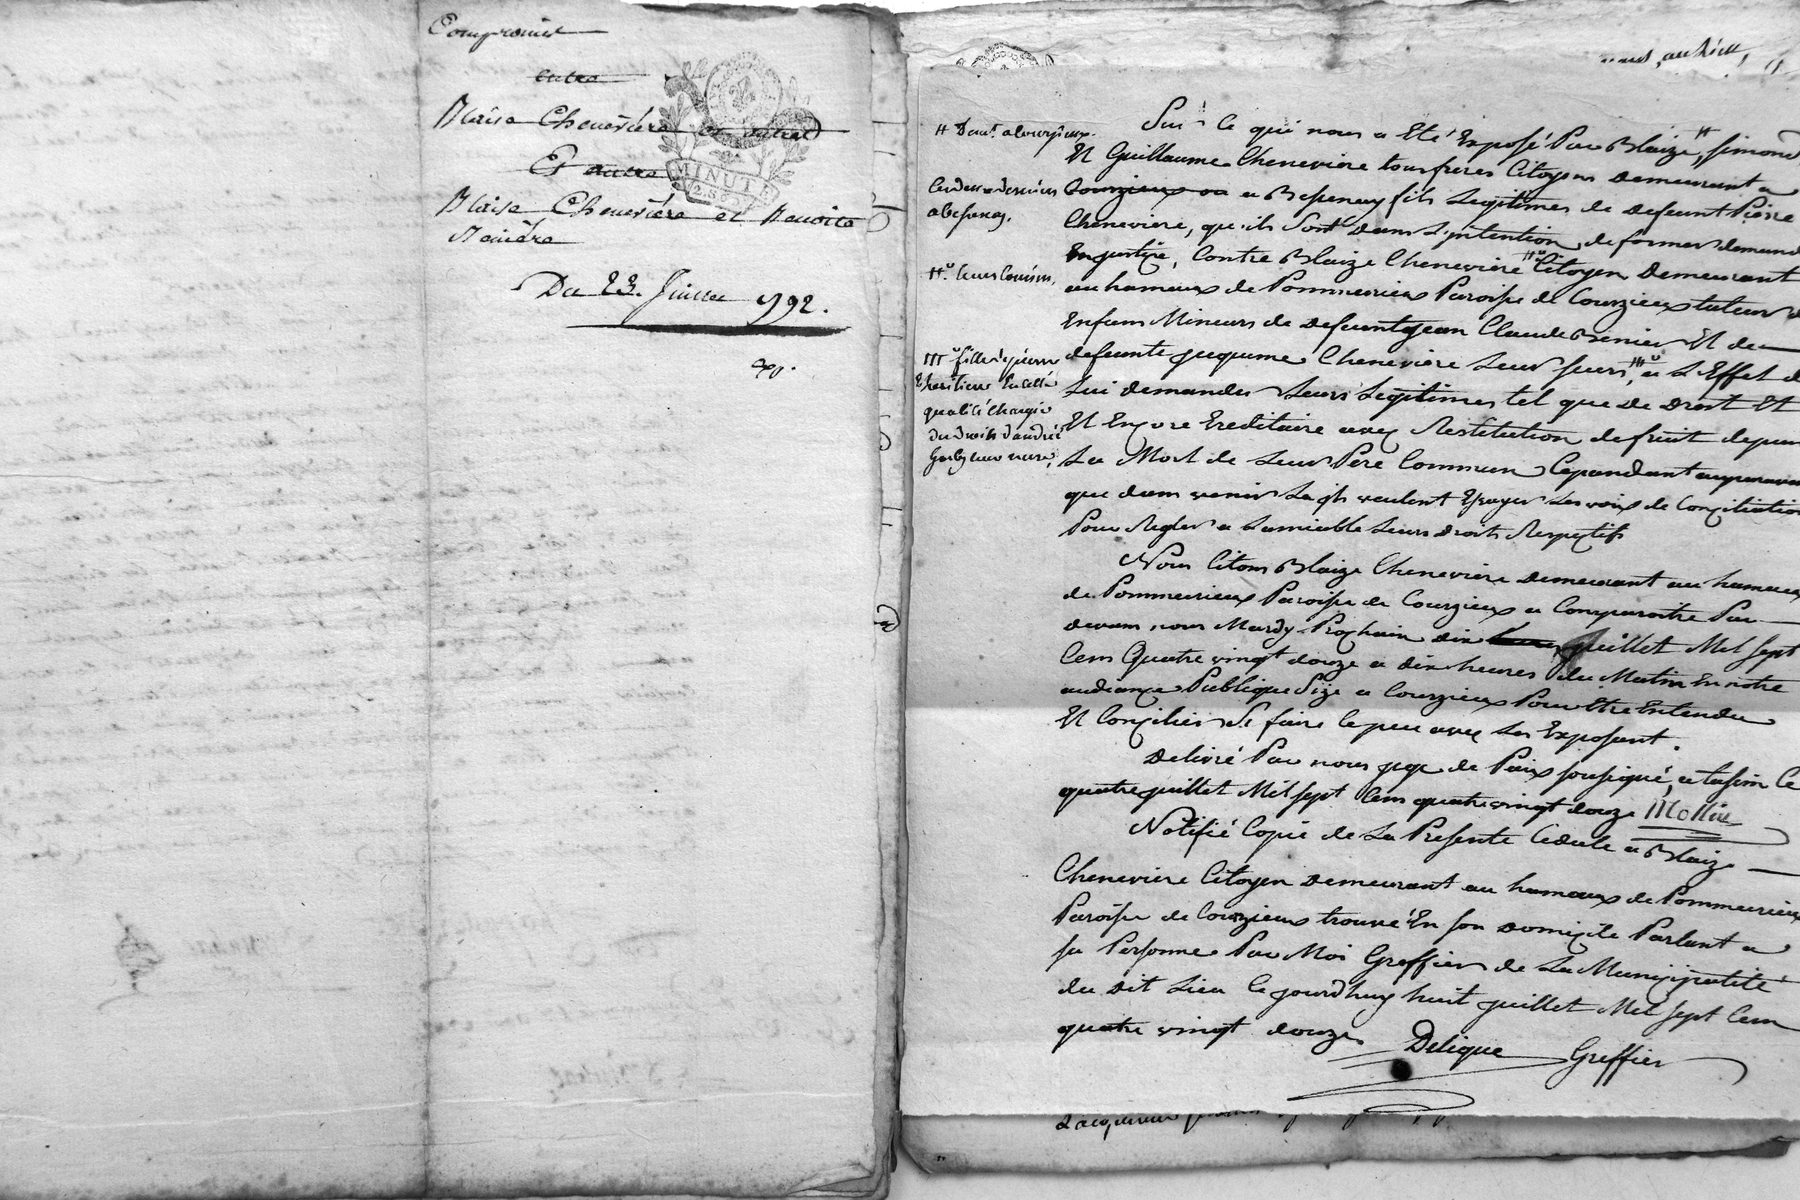 Compromis
entre
Blaise Chenevière et autres
Et autre
Blaise Chenevière et Benoite
Du 23. Juillet 1792.
MINUTE
Sur ce qui nous a Eté Exposé Par Blaize, simond
# Demt. a Courzieux.
Et Guillaume Chenevière tous freres Citoyens demeurant a
Courzieux ou a Bessenay fils Legitimes de defeunt Pierre
les deux derniers
a Bessenay.
Chenevière, qu'ils sont dans L'intention de former demand
En justice, Contre Blaize Chenevière Citoyen demeurant
leur Cousin,
au hameux de Pommerieux Paroisse de Courzieux tuteur d
Enfans Mineurs de defeunt jean Claude Benier Et de
defeunte jacqueme Chenevière Leur seur, a L'Effet d
Lui demander Leurs Legitimes tel que de droit Et
Et Encore Ereditaire avec Restitution de fruit depui
La Mort de Leur Pere Commun Cepandant auparavan
que d'em venir La ils veulent Essayer Les voix de Conciliation
Pour Regler a L'amiable Leurs droits Respectifs
Nous Citons Blaize Chenevière demeurant au hameux
de Pommerieux Paroisse de Courzieux a Comparoitre Par
devam nous Mardy Prochain dix juillet Mil sept
Cens Quatre vingt douze a dix heures du Matin En notre
audiance Publique Size a Courzieux Pour Etre Entendu
Et Concilier Si faire Ce peu avec Les Exposant.
Delivré Par nous juge de Paix soussigné, Ce
quatre juillet Mil sept Cens quatre vingt douze
Notifié Copie de La Presente Cedule a Blaize
Chenevière Citoyen demeurant au hameaux de Pommerieux
Paroisse de Courzieux trouvé En son domicile Parlant a
sa Personne Par Moi Greffier de La Municipalité
du dit Lieu Ce jourd'huy huit juillet Mil sept Cens
quatre vingt douze Deligue Greffier